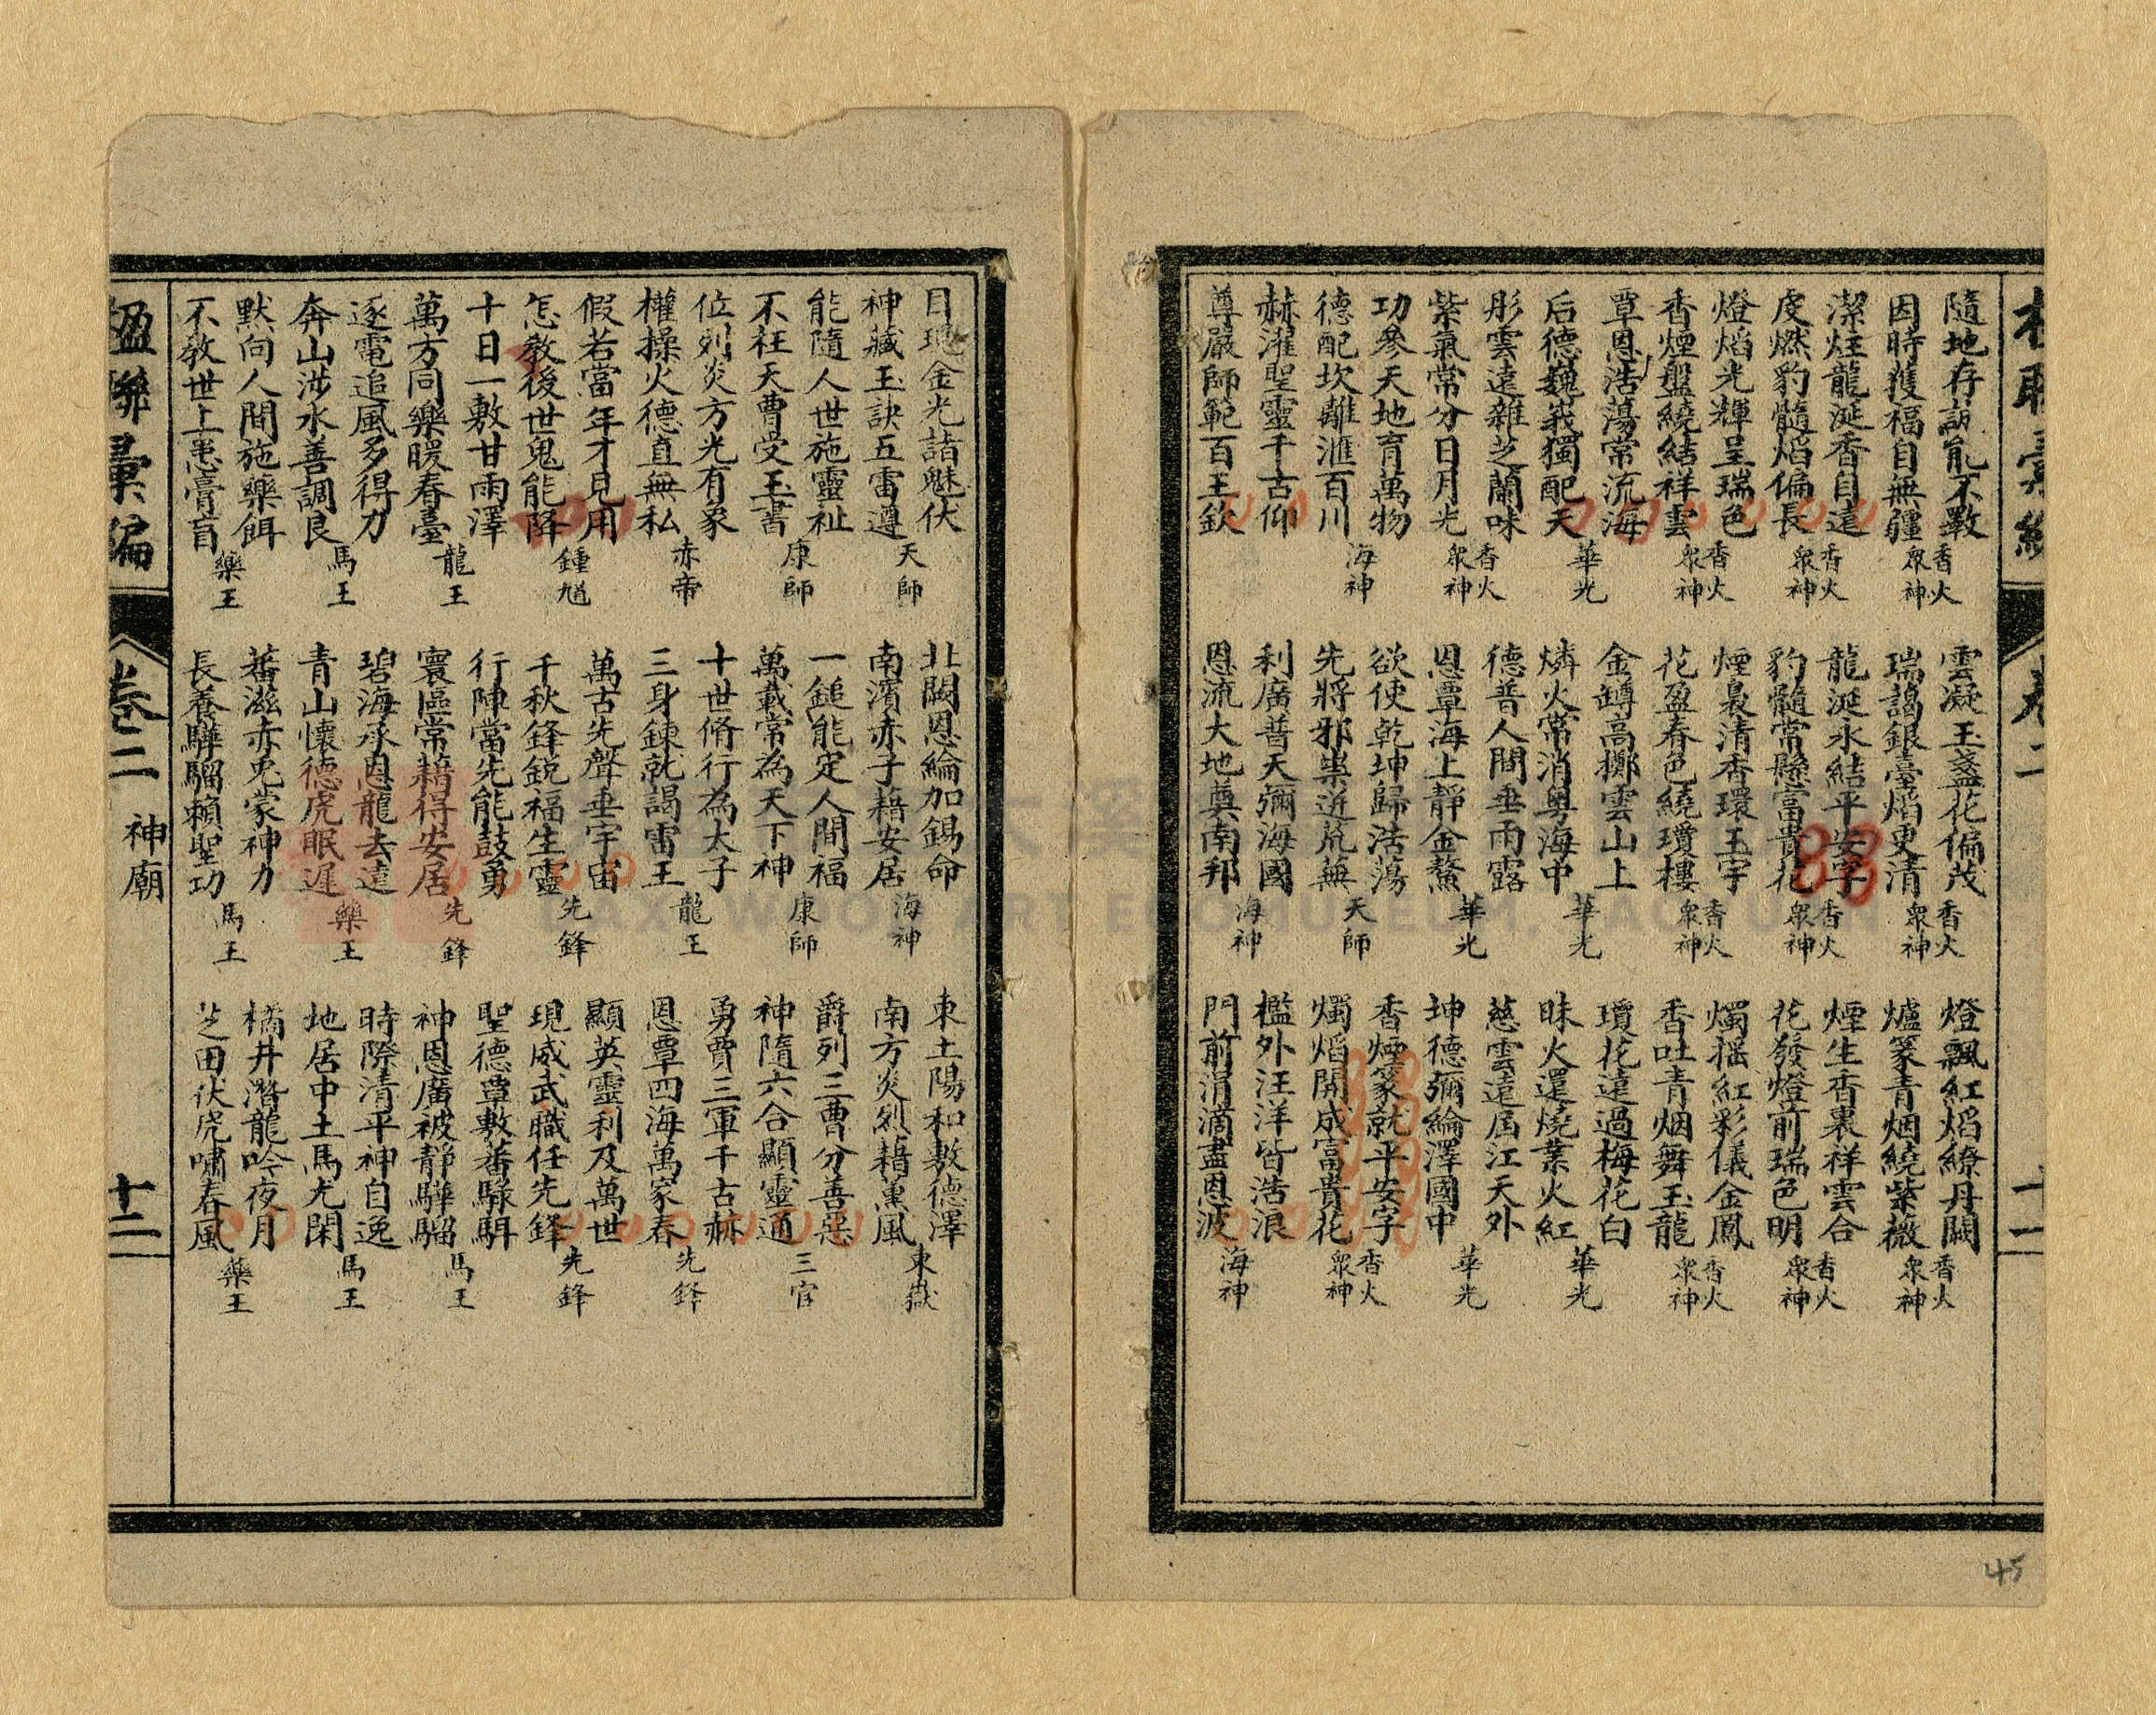 隨地存誠能不斁
因時獲福自無疆
香火眾神
潔炷龍涎香自遠
虔燃豹髓焰偏長
香火眾神
燈焰光輝呈瑞色
香煙盤繞結祥雲
香火眾神
覃恩浩蕩常流海
后德巍峩獨配天
華光
彤雲遠雜芝蘭味
紫氣常分日月光
香火眾神
功參天地育萬物
德配坎離滙百川
海神
赫濯聖靈千古仰
尊嚴師範百王欽
雲凝玉盞花偏茂
瑞靄銀臺焰更清
香火眾神
龍涎永結平安字
豹髓常懸富貴花
香火眾神
煙裊清香環玉宇
花盈春色繞瓊樓
香火眾神
金罇高擲雲山上
燐火常消粵海中
華光
德普人間垂雨露
恩覃海上靜金鰲
華光
欲使乾坤歸浩蕩
先將邪祟迸荒蕪
天師
利廣普天彌海國
恩流大地奠南邦
海神
燈飄紅焰繚丹闕
爐篆青烟繞紫薇
香火眾神
煙生香裏祥雲合
花發燈前瑞色明
香火眾神
燭搖紅彩儀金鳳
香吐青烟舞玉龍
香火眾神
瓊花遠過梅花白
昧火還燒業火紅
華光
慈雲遠屆江天外
坤德彌綸澤國中
華光
香煙篆就平安字
燭焰開成富貴花
香火眾神
檻外汪洋皆浩浪
門前涓滴盡恩波
海神
卷二
十一
45
目現金光諸魅伏
神藏玉訣五雷遵
天師
能隨人世施靈祉
不枉天曹受玉書
康師
位列炎方光有象
權操火德直無私
赤帝
假若當年才見用
怎教後世鬼能降
鍾馗
十日一敷甘雨澤
萬方同樂暖春臺
龍王
逐電追風多得力
奔山涉水善調良
馬王
默向人間施藥餌
不教世上患膏肓
藥王
北闕恩綸加錫命
南濱赤子藉安居
海神
一鎚能定人間福
萬載常為天下神
康師
十世脩行為太子
三身鍊就謁雷王
龍王
萬古先聲垂宇宙
千秋鋒銳福生靈
先鋒
行陣當先能鼓勇
寰區常藉得安居
先鋒
碧海承恩龍去遠
青山懷德虎眠遲
藥王
蕃滋赤兎蒙神力
長養驊騮賴聖功
馬王
東土陽和敷德澤
南方炎烈藉薰風
東嶽
爵列三曹分善惡
神隨六合顯靈通
三官
勇賈三軍千古赫
恩覃四海萬家春
先鋒
顯英靈利及萬世
現威武職任先鋒
先鋒
聖德覃敷蕃騄駬
神恩廣被靜驊騮
馬王
時際清平神自逸
地居中土馬尤閑
馬王
橘井潛龍吟夜月
芝田伏虎嘯春風
藥王
楹聯彙編
卷二
神廟
十二